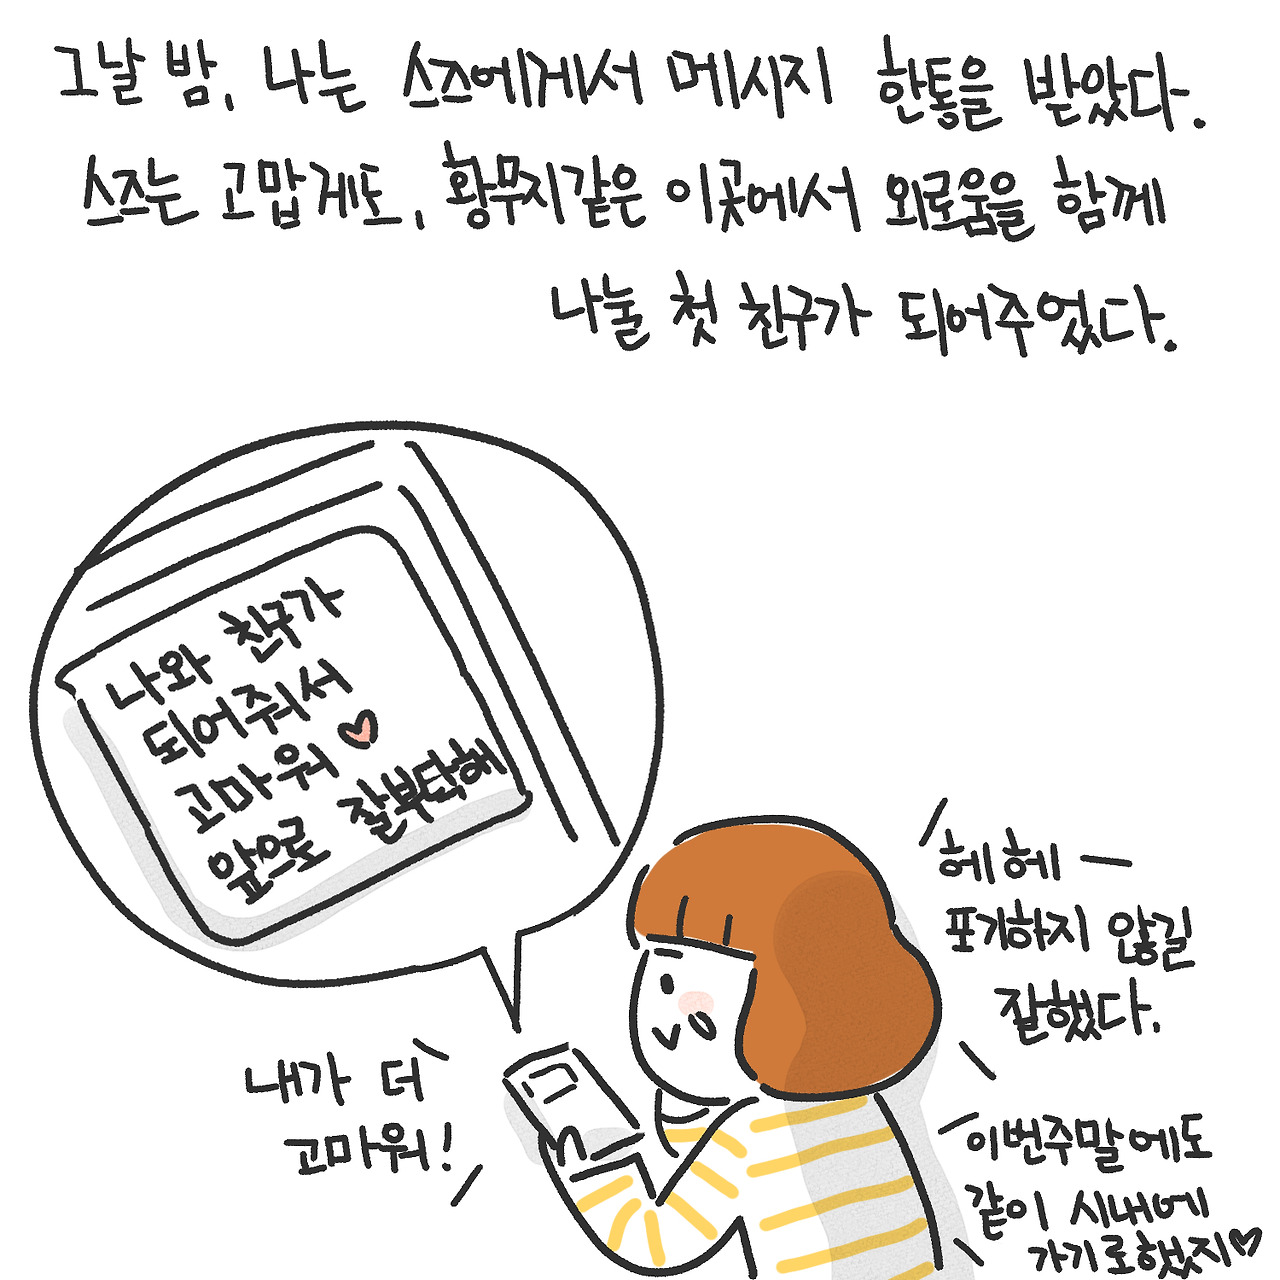 그날 밤, 나는 스즈에게서 메시지 한통을 받았다.
스즈는 고맙게도, 황무지같은 이곳에서 외로움을 함께
나눌 첫 친구가 되어주었다.
나와 친구가
되어줘서
고마워♥
앞으로 잘부탁해
헤헤 —
포기하지 않길
잘했다.
내가 더
고마워!
이번주말에도
같이 시내에
가기로했지♥